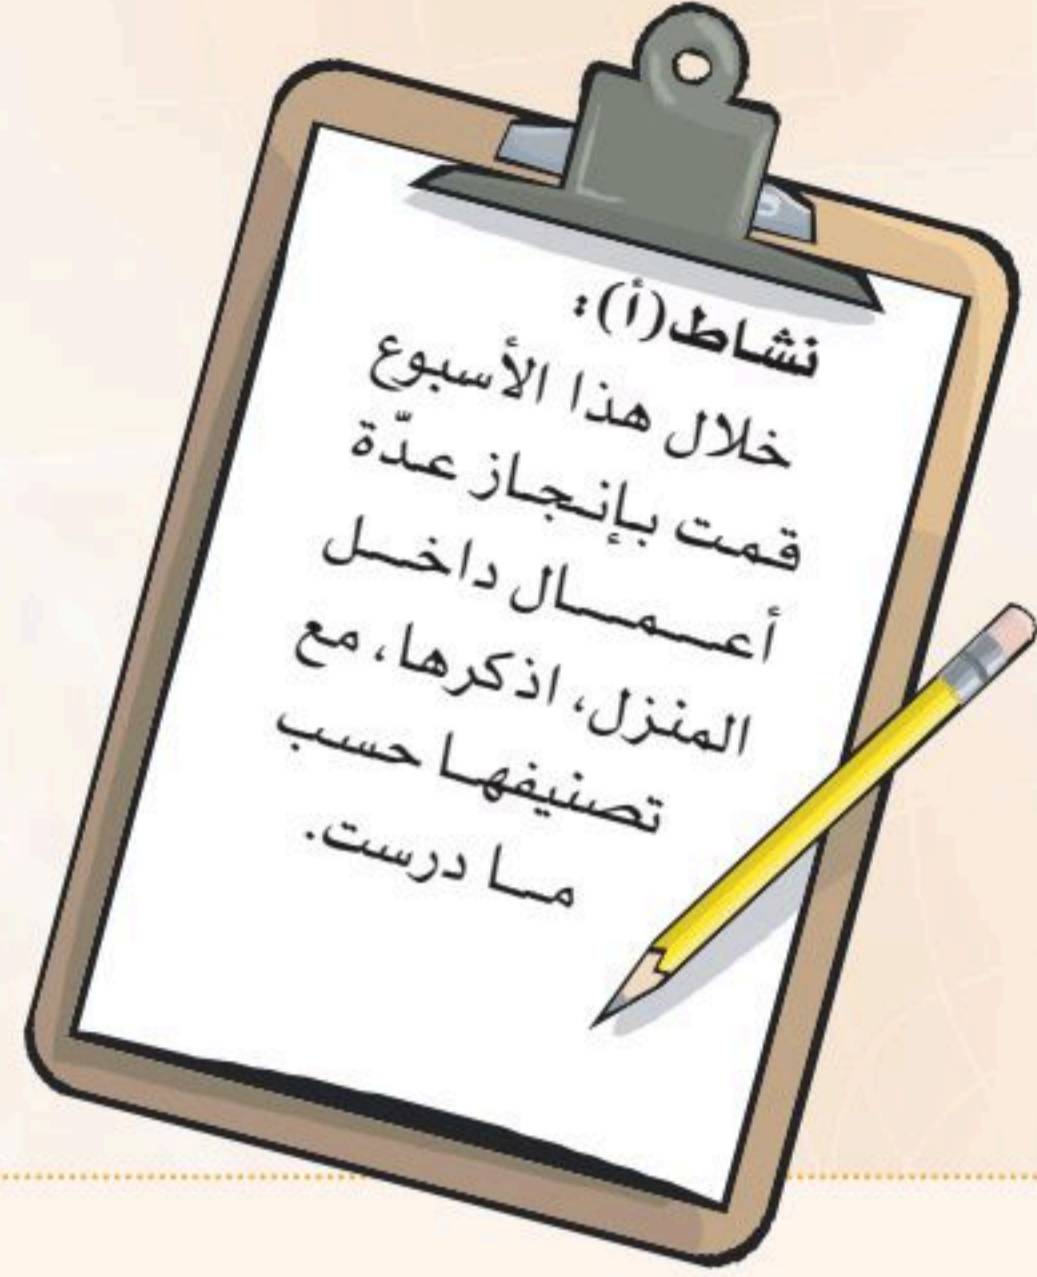 نشاط (أ):
خلال هذا الأسبوع
قمت بإنجاز عدّة
أعمال داخل
المنزل، اذكرها، مع
تصنيفها حسب
ما درست.